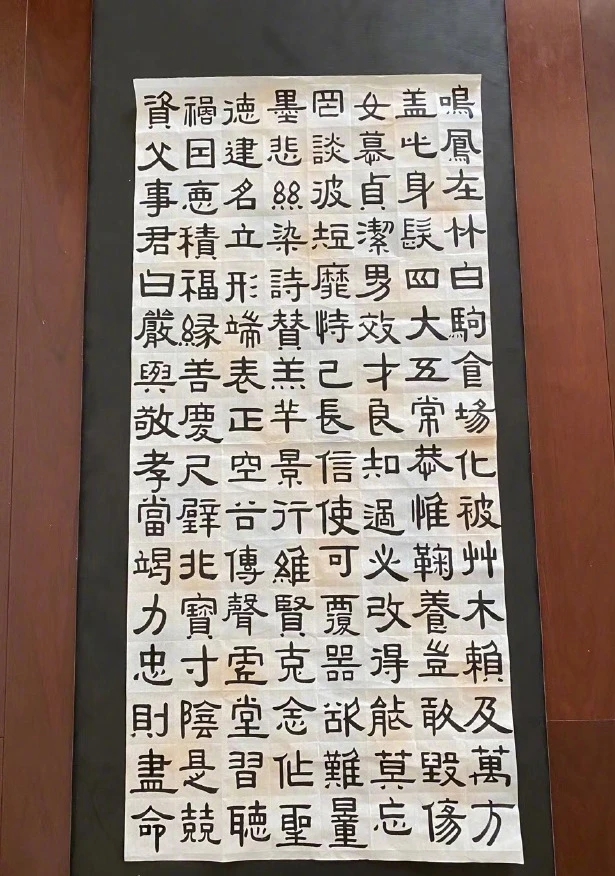 鳴鳳在林白駒食場化被艸木賴及萬方
盖此身髮四大五常恭惟鞠養豈敢毀傷
女慕貞潔男效才良知過必改得能莫忘
罔談彼短靡恃己長信使可覆器欲難量
墨悲絲染詩贊羔羊景行維賢克念作聖
德建名立形端表正空谷傳聲虛堂習聽
禍因惡積福緣善慶尺璧非寶寸陰是競
資父事君曰嚴與敬孝當竭力忠則盡命